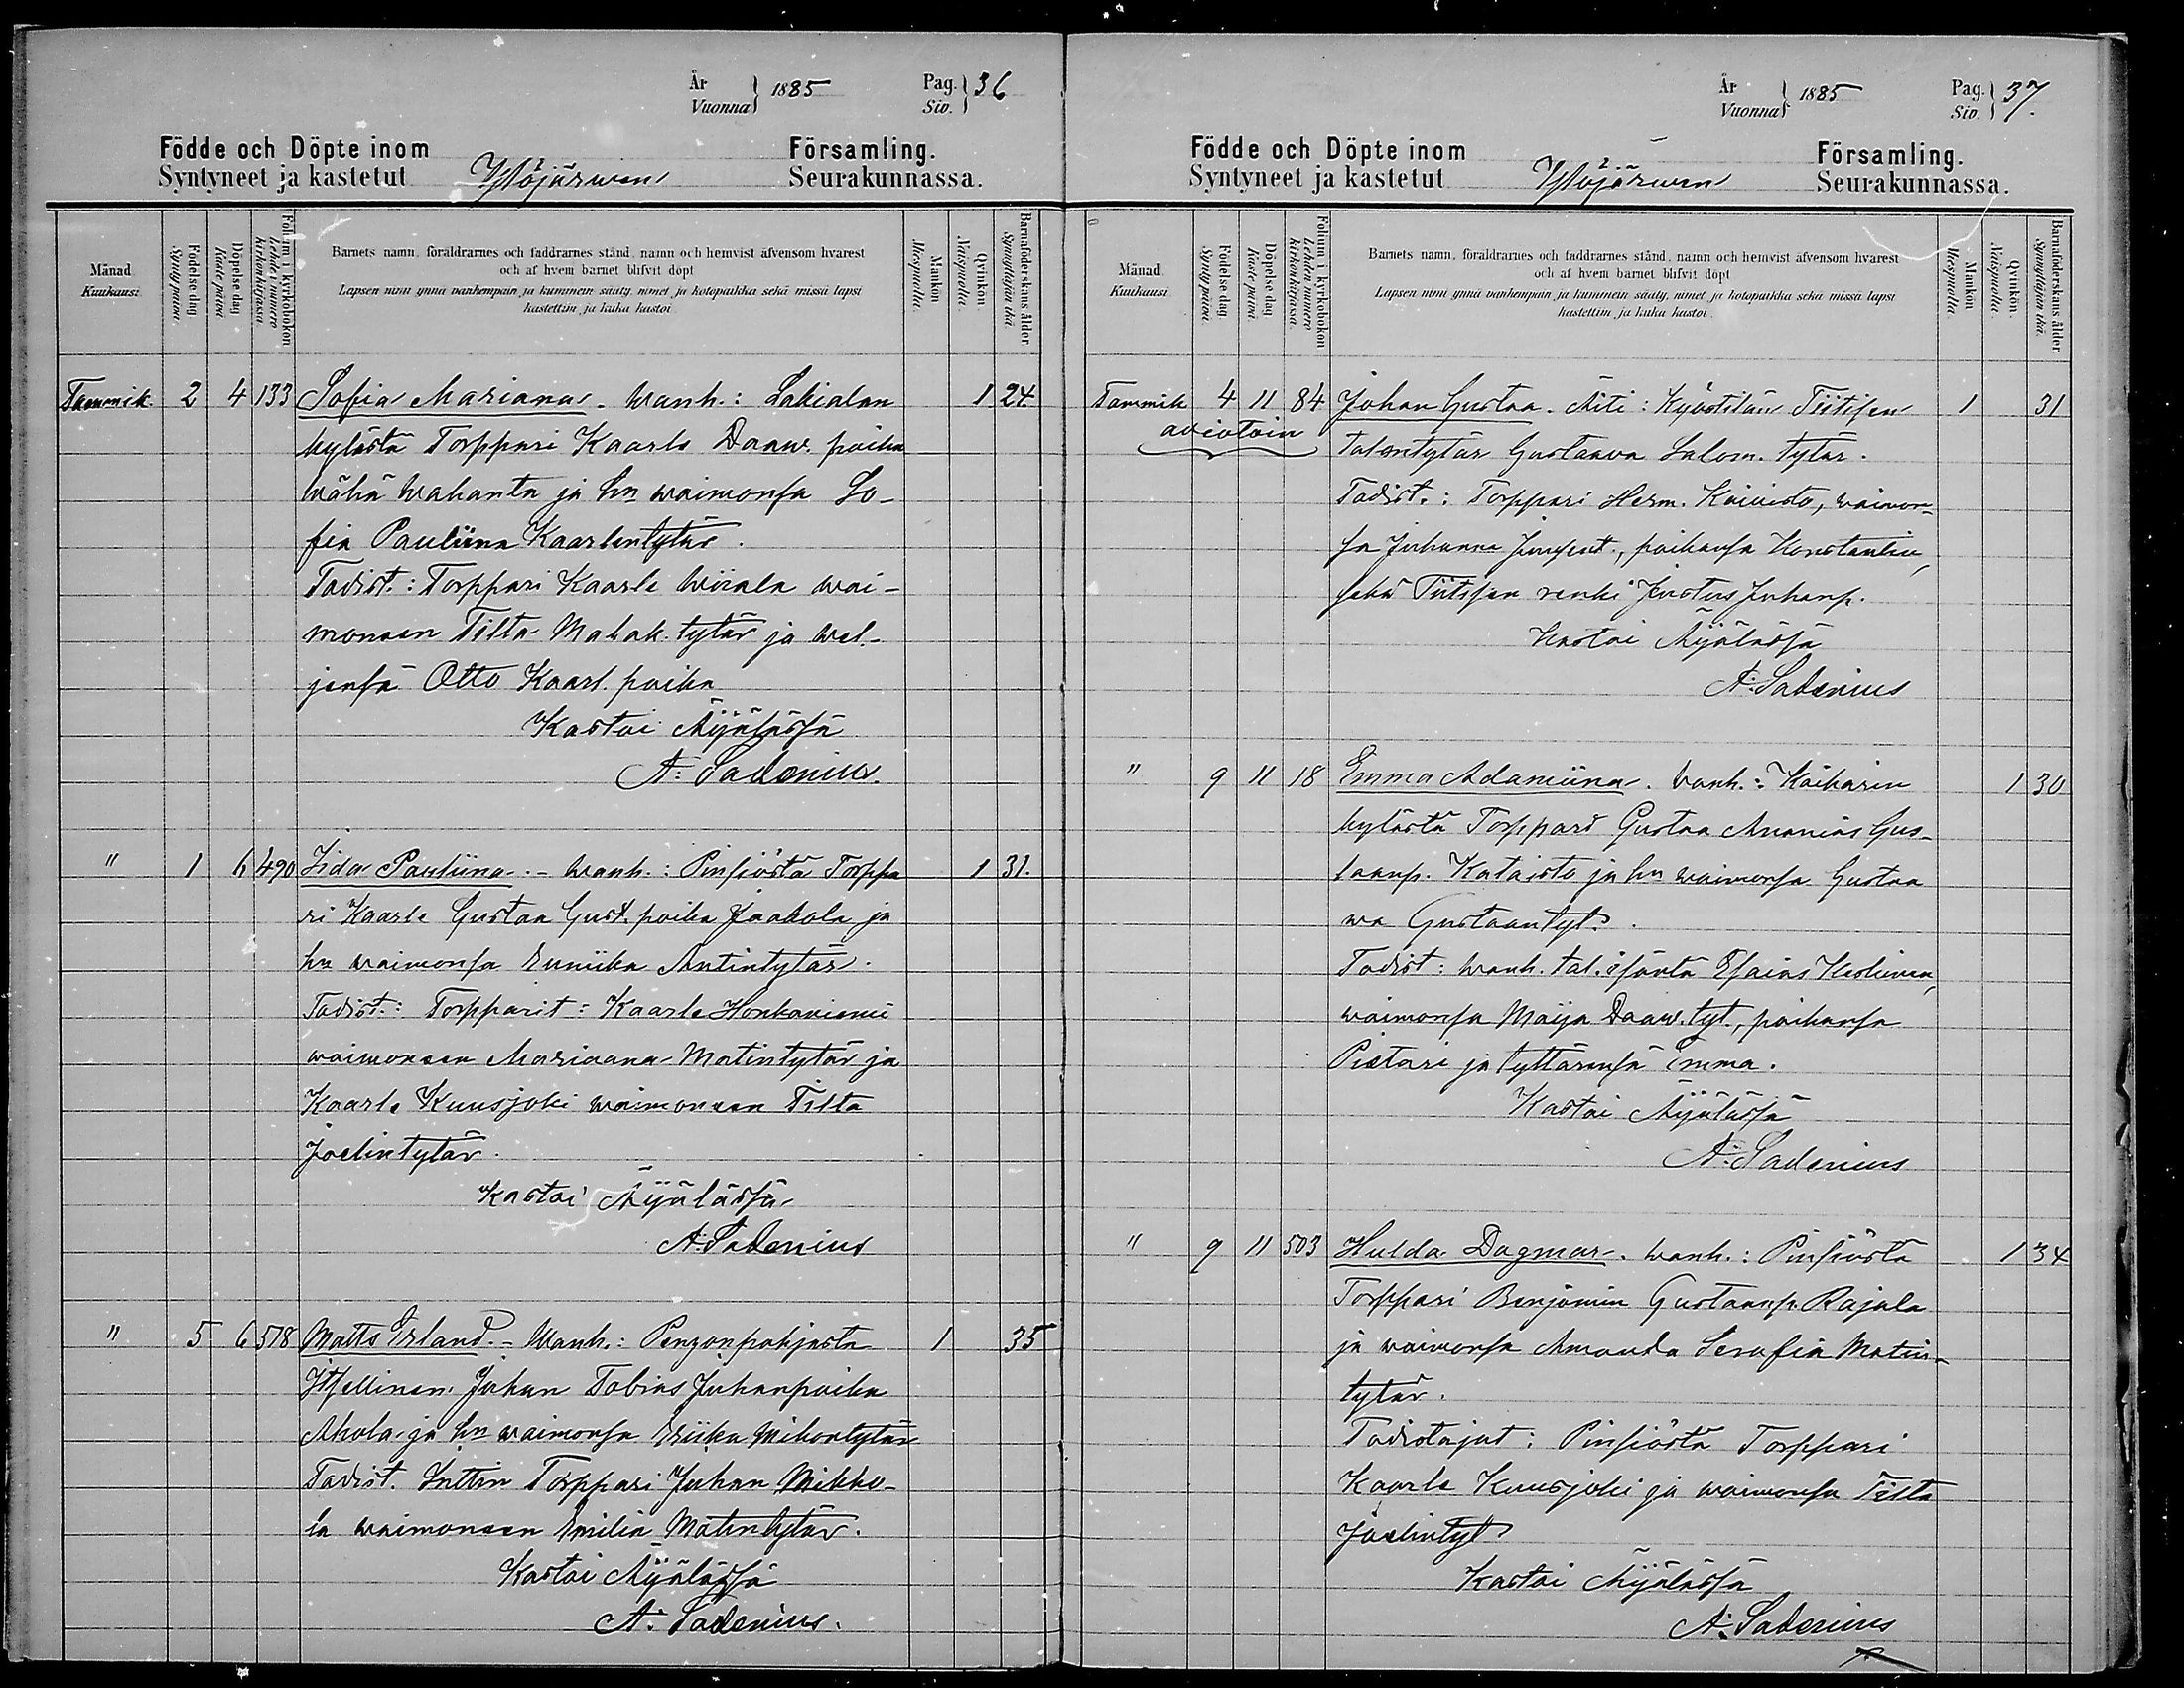 År Vuonna } 1885 Pag. Siv. } 36
Födde och Döpte inom Församling.
Syntyneet ja kastetut Ylöjärwen Seurakunnassa.
Månad Kuukausi
Födelse dag Synty päivä.
Döpelse dag Kaste päivä
Folium i kyrkoboken Lehden numero kirkonkirjassa
Barnets namn, föräldrarnes och faddrarnes stånd, namn och hemvist äfvensom hvarest
och af hvem barnet blifvit döpt
Lapsen nimi ynnä vanhempain ja kummein sääty, nimet ja kotopaikka sekä missä lapsi
kastettiin ja kuka kastoi
Mankön Miespuolta.
Qvinkön. Naispuolta.
Barnaföderskans ålder. Synnyttäjän ikä
Tammik. 2 4 133 Sofia Mariana. Wanh.: Lakialan 1 24
kylästä Torppari Kaarlo Daaw. poika
Wähä Wahanta ja hn waimonsa So-
fia Pauliina Kaarlentytär.
Todist.: Torppari Kaarle Wiiala wai-
monsen Tilta Mahak. tytär ja wel-
jensä Otto Kaarl. poika
Kastoi Äijälässä
A. Sadenius.
" 1 6 490 Iida Pauliina. - Wanh.: Pinsiöstä Torppa 1 31.
ri Kaarle Gustaa Gust. poika Jaakola ja
hn waimonsa Euniika Antintytär.
Todist.: Torpparit: Kaarle Honkaniemi
waimonsen Mariaana Matintytär ja
Kaarle Kuusjoki waimonsen Tilta
Joelintytär.
Kastoi Äijälässä
A. Sadenius
" 5 6 518 Matts Erland. - Wanh.: Pengonpohjasta 1 35
Itsellinen Juhan Tobias Juhanpoika
Ahola ja hn waimonsa Eriika Mikontytär
Todist. Torppari Juhan Mikko-
la waimonsen Emilia Matintytär.
Kastoi Äijälässä
A. Sadenius.
År Vuonna } 1885 Pag. Siv. } 37.
Födde och Döpte inom Församling.
Syntyneet ja kastetut Ylöjärwen Seurakunnassa.
Månad. Kuukausi
Födelse dag. Synty päivä.
Döpelse dag Kaste päivä.
Folium i kyrkoboken Lehden numero kirkonkirjassa.
Barnets namn, föräldrarnes och faddrarnes stånd, namn och hemvist äfvensom hvarest
och af hvem barnet blifvit döpt
Lapsen nimi ynnä vanhempain ja kummein sääty, nimet ja kotopaikka sekä missä lapsi
kastettiin ja kuka kastoi.
Mankön Miespuolta.
Qvinkön. Naispuolta.
Barnaföderskans ålder. Synnyttäjän ikä.
Tammik 4 11 84 Johan Gustaa. Äiti: Kyöstilän Tiitisen 1 31
aviotoin talontytär Gustaava Salom. tytär.
Todist.: Torppari Herm. Koivisto, waimon-
sa Juhanna , poikansa Konstantin,
sekä Tiitisen renki Justus Juhanp.
Kastoi Äijälässä
A. Sadenius
" 9 11 18 Emma Adamiina. Wanh.: Keikarin 1 30
kylästä Torppari Gustaa Ananias Gus-
taanp. Kataisto ja hn waimonsa Gustaa
wa Gustaantyt.
Todist: Wanh. tal. isäntä Esaias Keskinen,
waimonsa Maija Daaw. tyt., poikansa
Pietari ja tyttärensä Emma.
Kastoi Äijälässä
A. Sadenius
" 9 11 503 Hulda Dagmar. Wanh.: Pinsiöstä 1 34
Torppari Benjamin Gustaanp. Rajala
ja waimonsa Amanda Serafia Matin-
tytär.
Todistajat: Pinsiöstä Torppari
Kaarle Kuusjoki ja waimonsa Tilta
Joelintyt
Kastoi Äijälässä
A. Sadenius